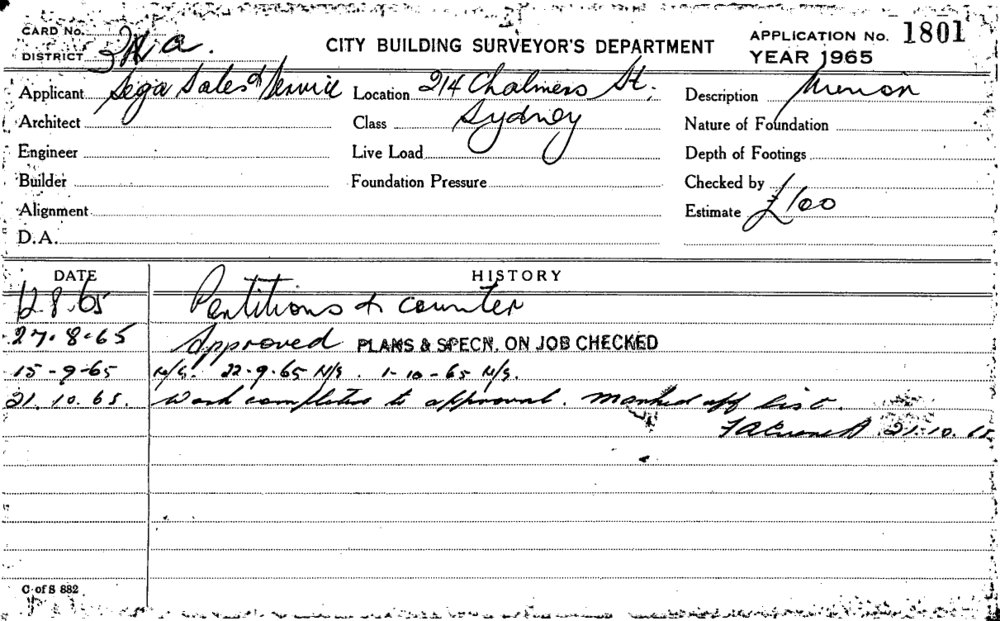 CARD No.
DISTRICT
CITY BUILDING SURVEYOR'S DEPARTMENT
APPLICATION No. 1801
YEAR 1965
Applicant Sega Sales & Service Location 214 Chalmers St, Description
Architect Class Sydney Nature of Foundation
Engineer Live Load Depth of Footings
Builder Foundation Pressure Checked by
Alignment Estimate £100
D.A.
DATE HISTORY
12.8.65 Partitions & counter
27.8.65 Approved PLANS & SPECN. ON JOB CHECKED
15-9-65 N/S. 22-9-65 N/S. 1-10-65 N/S.
21.10.65. Work completed to approval. Marked off list.
21.10.65
C of S 882